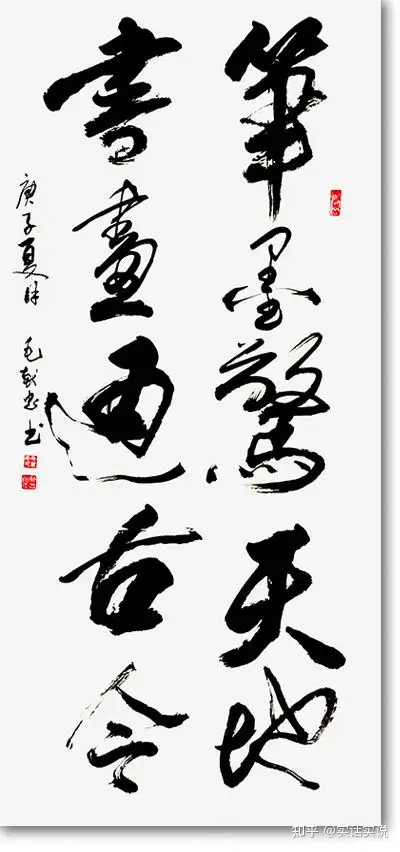 筆墨驚天地
書畫通古今
庚子夏月 毛
知乎 @实话实说